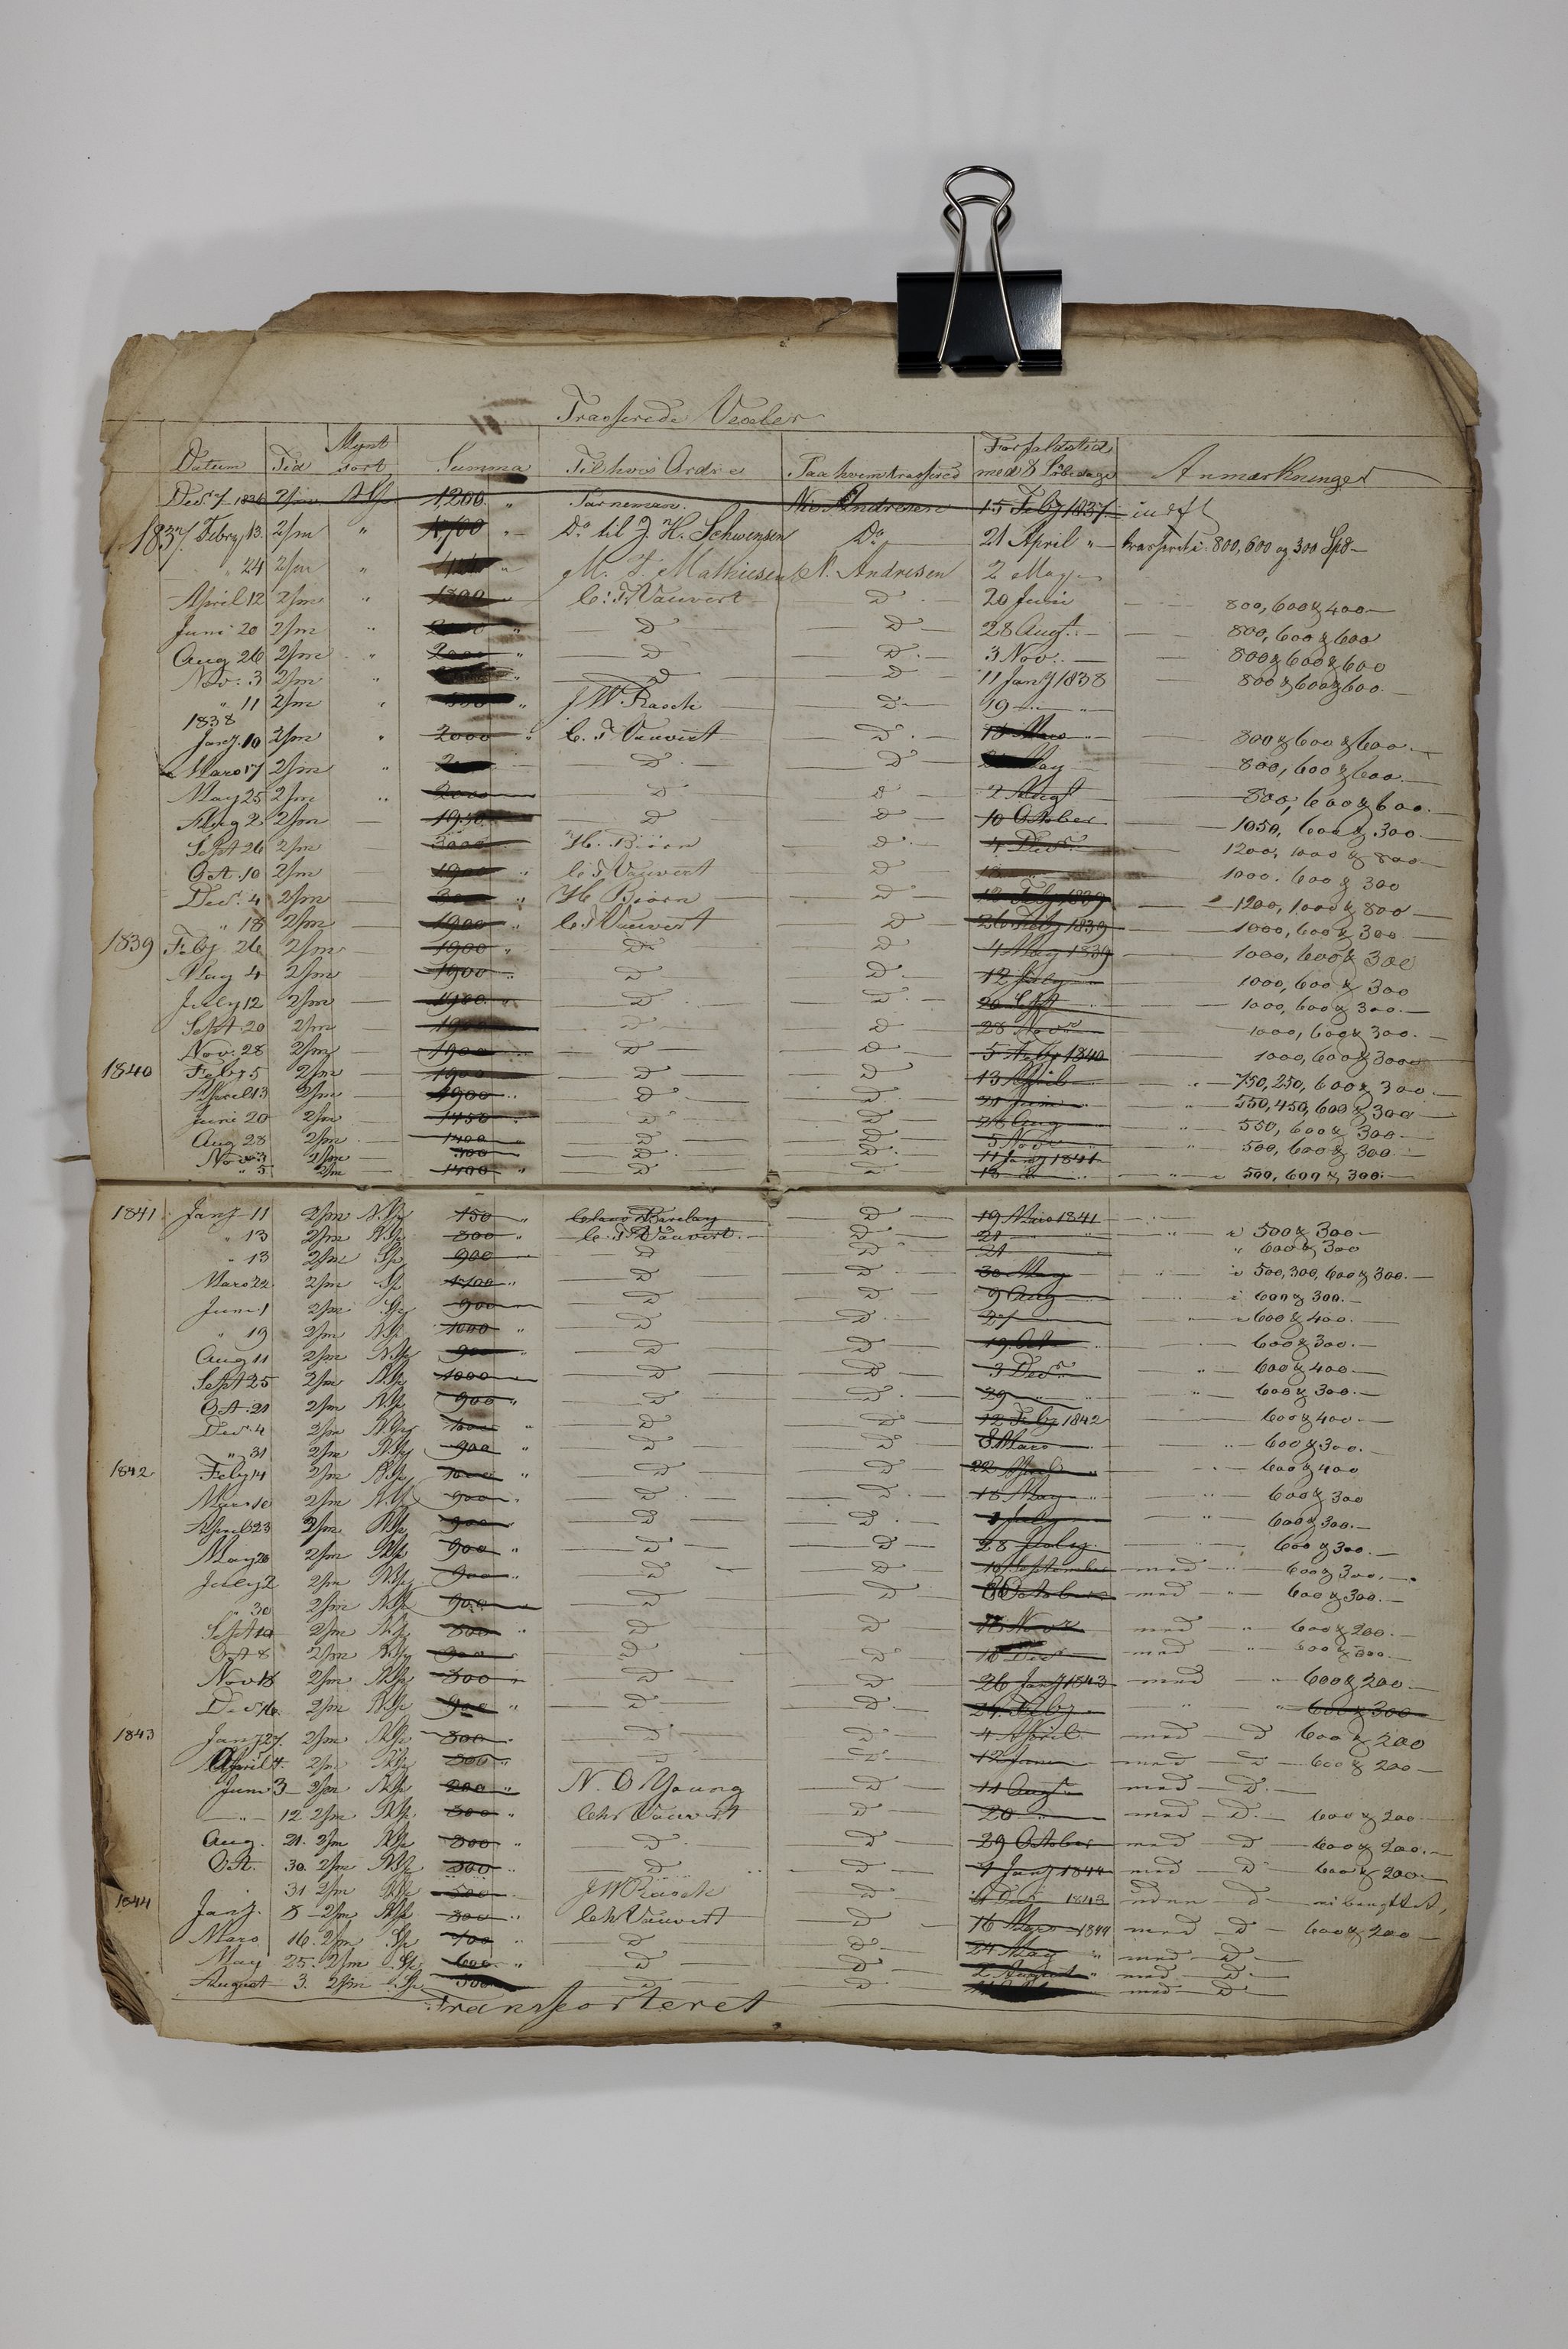 Trasserede Vexler
Datum Tid Mynt sort Summa Til hvis Ordre Paa hvem trasseret Forfaldstid med 8 Løbedage Anmærkninger
Decr 7 1836 2/m 1,200 " Tarneman. Ns Andresen 15 Feby 1837
1837 Febry 13. 2/m " 1700 " Do til J. H. Schwensen Do 21 April " trasseret i 800, 600 og 300 Spd
" 24 2/m " " M. Mathiesen N. Andresen 2 May
April 12 2/m " " C. F. Vauvert D 20 Juni 800, 600 & 400
Juni 20 2/m " " D D 28 Augt. 800, 600 & 600
Aug 26 2/m " 2000 " D D 3 Nov. 800 & 600 & 600
Nov. 3 2/m " " D D 11 Jany 1838 800 & 600 & 600.
" 11 2/m " " J W. Rasch D 19 "
1838
Jany. 10 2/m " 2000 " C. F. Vauvert D 18 Mars " 800 & 600 & 600.
Mars 17 2/m " D D May 800, 600 & 600.
May 25 2/m " 2000 D D 2 Augt 800, 600 & 600.
Aug 2 2/m 1950 D D 10 October 1050, 600 & 300.
Sept 26 2/m 3000 H. Biørn D 4 Decr. 1200, 1000 & 800
Oct. 10 2/m 1900 " C. F. Vauvert D 18 1000, 600 & 300
Decr. 4 2/m " H. Biørn D 12 Feby 1839 1200, 1000 & 800
" 18 2/m 1900 " C. F. Vauvert D 26 Feby 1839 1000, 600 & 300
1839 Feby. 26 2/m 1900 " D D 4 May 1839 1000, 600 & 300
May 4 2/m 1900 " D D 12 July 1000, 600 & 300
July 12 2/m 1900 " D D 20 Sept " 1000, 600 & 300.
Sept. 20 2/m 1900 D D 28 Novr 1000, 600 & 300.
Nov. 28 2/m 1900 D D 5 Feby 1840 1000, 600 & 300
1840 Feby 5 2/m 1900 D D 13 April " 750, 250, 600 & 300.
April 13 2/m 1900 " D D 21 Juni " 550, 450, 600 & 300
Juni 20 2/m 1450 " D D 28 Aug " 550, 600 & 300.
Aug 28 2/m 1400 " D D 5 Novr " 500, 600 & 300.
Nov 3 2/m 300 " D D 11 Jany 1841
" 5 2/m 1400 " D D 13 " 500, 600 & 300.
1841 Jany 11 2/m N.Sp 150 " Barclay D 19 Mars 1841
" 13 2/m N.Sp 800 " C. F. Vauvert. D 21 " i 500 & 300
" 13 2/m Sp 900 D D 21 " 600 & 300
Mars 22 2/m Sp 1700 " D D 30 May " i 500, 300, 600 & 300.
Juni 1 2/m Sp 900 D D 9 Aug i 600 & 300.
" 19 2/m N.Sp 1000 " D D 27 600 & 400.
Aug 11 2/m N.Sp 900 " D D 19 Oct 600 & 300.
Sept 25 2/m N.Sp 1000 D D 3 Decr " 600 & 400
Oct. 21 2/m N.Sp 900 " D D 29 " " 600 & 300.
Decr. 4 2/m N.Sp 1000 " D D 12 Feby 1842 600 & 400.
" 31 2/m N.Sp 900 " D D 8 Mars " 600 & 300.
1842 Feby 14 2/m N.Sp 1000 " D D 22 April " 600 & 400
Mars 10 2/m N.Sp 900 " D D 18 May " 600 & 300
April 23 2/m N.Sp 900 " D D July " 600 & 300.
May 20 2/m N.Sp 900 " D D 28 July " 600 & 300.
July 2 2/m N.Sp 900 " D D September med " 600 & 300.
" 30 2/m N.Sp 900 D D October med " 600 & 300.
Sept 10 2/m N.Sp 800 " D D 18 Novr med " 600 & 200.
Oct 8 2/m N.Sp 900 " D D 16 Decr med " 600 & 300.
Nov 18 2/m N.Sp 800 " D D 26 Jany 1843 med " 600 & 200
Decr 16. 2/m N.Sp 900 " D D 24 Feby " " 600 & 300
1843 Jany 27. 2/m N.Sp 800 D D 4 April med D 600 & 200
April 4. 2/m N.Sp 800 " D D 12 Juni med D 600 & 200
Juni 3 2/m N.Sp 200 " N. O Young D 11 Augt med D.
" 12 2/m N.Sp 800 " Chr Vauvert D 20 " med D. 600 & 200
Aug. 21. 2/m N.Sp 800 " D D 29 October med D 600 & 200.
Oct. 30. 2/m N.Sp 800 " D D 7 Jany 1844 med D 600 & 200.
31 2/m N.Sp 500 J W Rasch D 1843 uden d
1844 Jany. 8 2/m N.Sp 800 " Chr Vauvert D 16 Mars 1844 med D 600 & 200
Mars 16. 2/m Sp 700 " D D 24 May " med D
May 25. 2/m Sp 600 " D D 2 August " med D.
August 3. 2/m Sp 500 D D med D
Transporteret